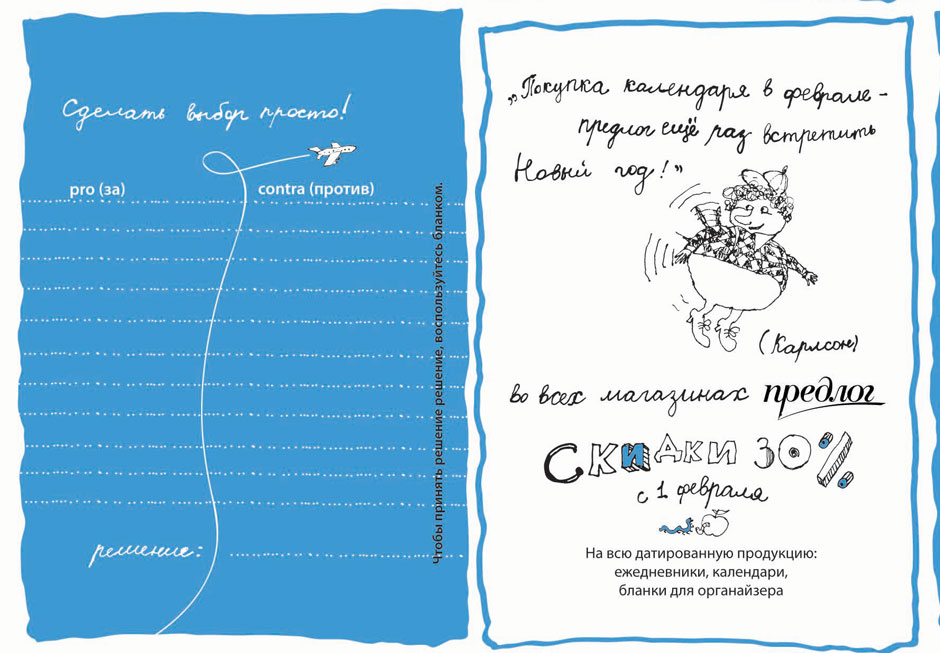 Сделать выбор просто!
pro (за)
contra (против)
решение:
Чтобы принять решение решение, воспользуйтесь бланком.
„Покупка календаря в феврале -
предлог ещё раз встретить
Новый год!”
(Карлсон)
во всех магазинах предлог
СКИДКИ 30%
с 1 февраля
На всю датированную продукцию:
ежедневники, календари,
бланки для органайзера